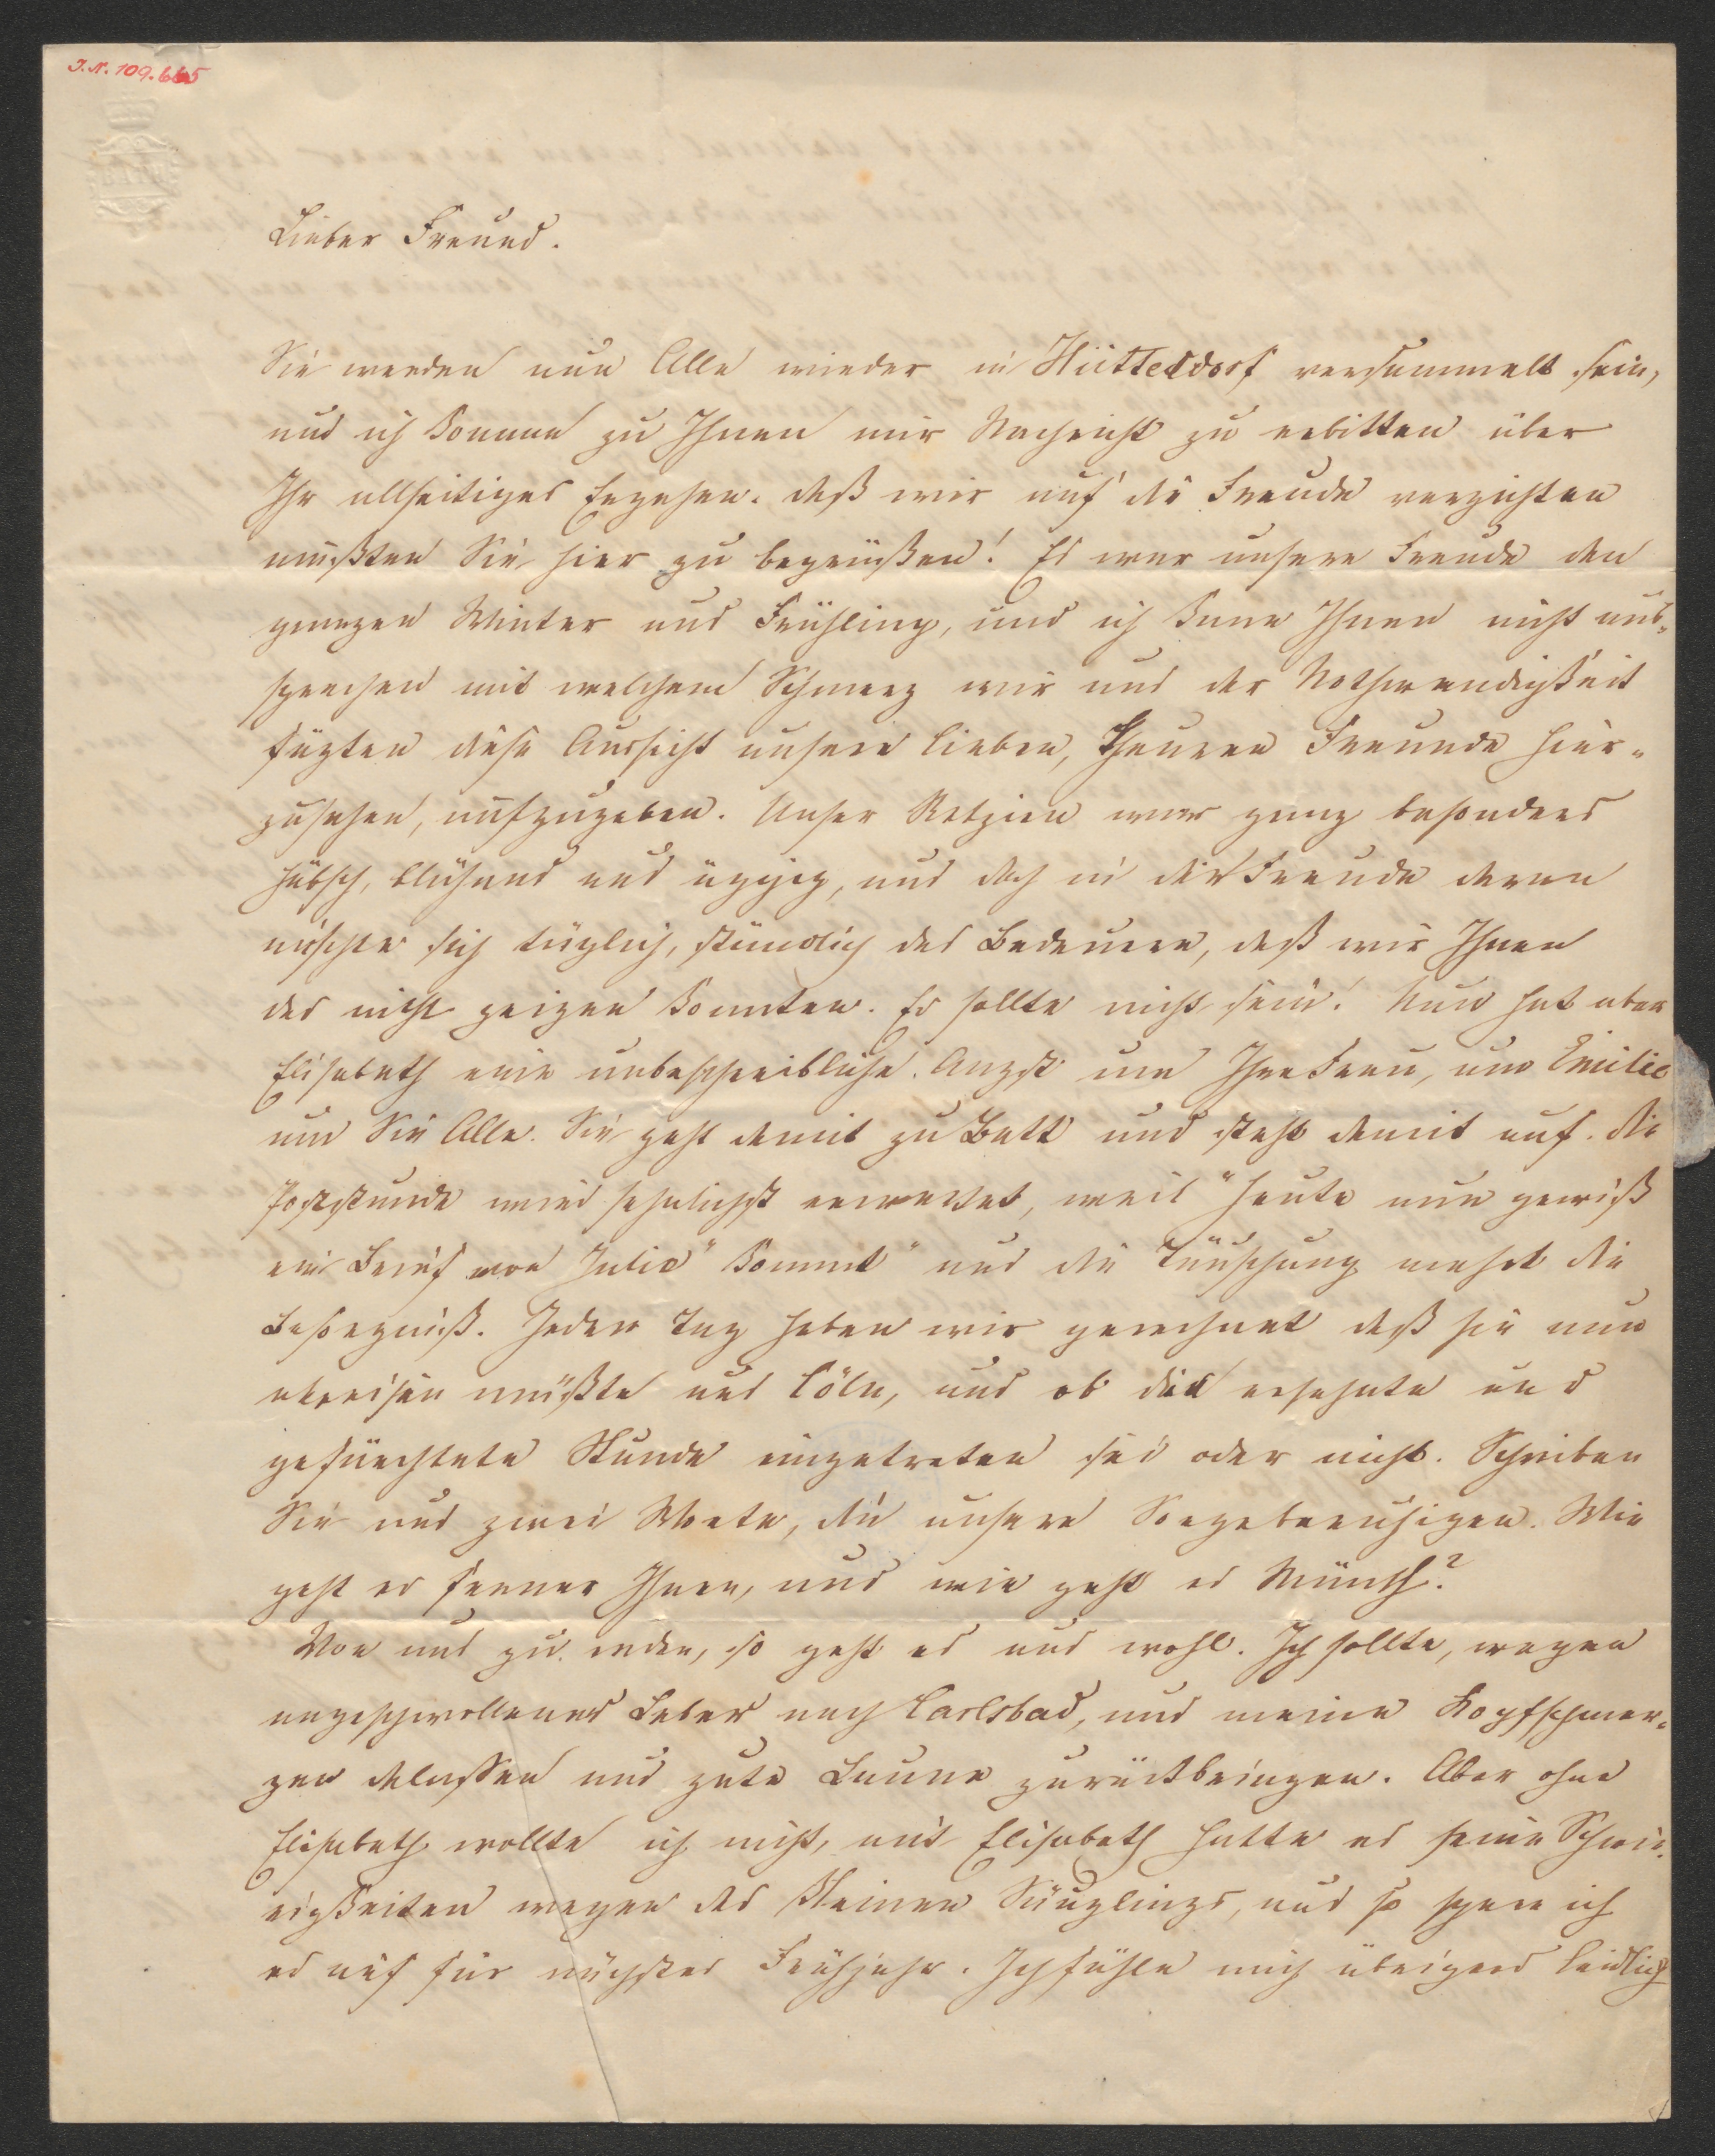 J. N. 109.665
Lieber Freund.
Sie werden nun Alle wieder in Hütteldorf versammelt sein,
und ich komme zu Ihnen mir Nachricht zu erbitten über
Ihr allseitiges Ergehen. Daß wir auf die Freude verzichten
mußten Sie hier zu begrüßen! Es war unsere Freude den
ganzen Winter und Frühling, und ich kann Ihnen nicht aus-
sprechen mit welchem Schmerz wir uns der Nothwendigkeit
fügten diese Aussicht unsere lieben, theuren Freunde hier-
zusehen, aufzugeben. Unser Retzien war ganz besonders
hübsch, blühend und üppig, und doch in die Freude daran
mischte sich täglich, stündlich das Bedauern, daß wir Ihnen
das nicht zeigen konnten. Es sollte nicht sein! Nun hat aber
Elisabeth eine unbeschreibliche Angst um Ihre Frau, um Emilie
um Sie Alle. Sie geht damit zu Bett und steht damit auf. Die
Poststunde wird sehnlichst erwartet, weil "heute nun gewiß
ein Brief von Julie" kommt" und die Täuschung mehrt die
Besorgniß. Jeden Tag haben wir gerechnet daß sie nun
abreisen müßte nach Cöln, und ob die ersehnte und
gefürchtete Stunde eingetreten sei oder nicht. Schreiben
Sie uns zwei Worte, die unsere Sorge beruhigen. Wie
geht es ferner Ihnen, und wie geht es Münch?
Von uns zu reden, so geht es uns wohl. Ich sollte, wegen
angeschwollener Leber nach Carlsbad, und meine Kopfschmer-
zen dalassen und gute Laune zurückbringen. Aber ohne
Elisabeth wollte ich nicht, mit Elisabeth hatte es seine Schwie-
rigkeiten wegen des kleinen Säuglings, und so spare ich
es auf für nächstes Frühjahr. Ich fühle mich übrigens leidlich